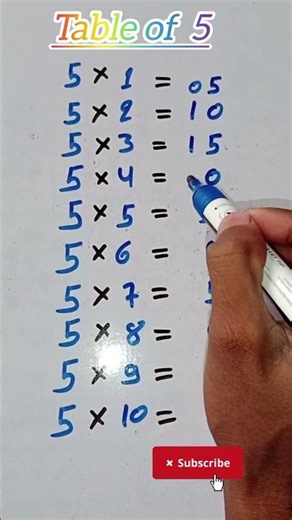 Table of 5
5 × 1 = 05
5 × 2 = 10
5 × 3 = 15
5 × 4 = 0
5 × 5 =
5 × 6 =
5 × 7 =
5 × 8 =
5 × 9 =
5 × 10 =
× Subscribe